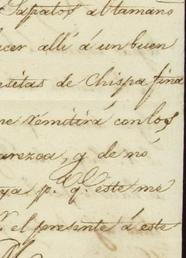 Sapatos al tamaño
cer allí á un buen
sitas de Chispa fina
me remitirá con los
areza, q de nó
ya p. q. este me
el presente á este